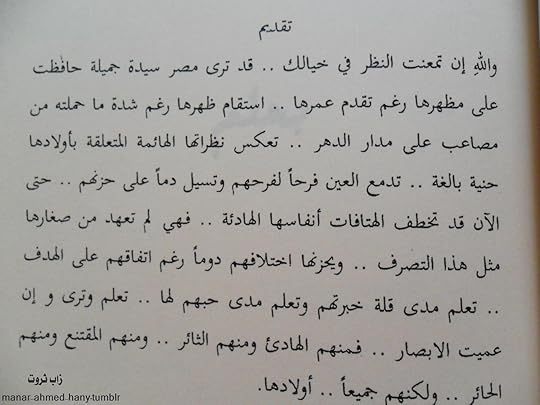 تقديم
والله إن تمعنت النظر في خيالك .. قد ترى مصر سيدة جميلة حافظت
على مظهرها رغم تقدم عمرها .. استقام ظهرها رغم شدة ما حملته من
مصاعب على مدار الدهر .. تعكس نظراتها الهائمة المتعلقة بأولادها
حنية بالغة .. تدمع العين فرحاً لفرحهم وتسيل دماً على حزنهم .. حتى
الآن قد تخطف الهتافات أنفاسها الهادئة .. فهي لم تعهد من صغارها
مثل هذا التصرف .. ويحزنها اختلافهم دوماً رغم اتفاقهم على الهدف
.. تعلم مدى قلة خبرتهم وتعلم مدى حبهم لها .. تعلم وترى و إن
عميت الابصار .. فمنهم الهادئ ومنهم الثائر .. ومنهم المقتنع ومنهم
الحائر .. ولكنهم جميعاً .. أولادها.
زاب ثروت
manar-ahmed-hany-tumblr